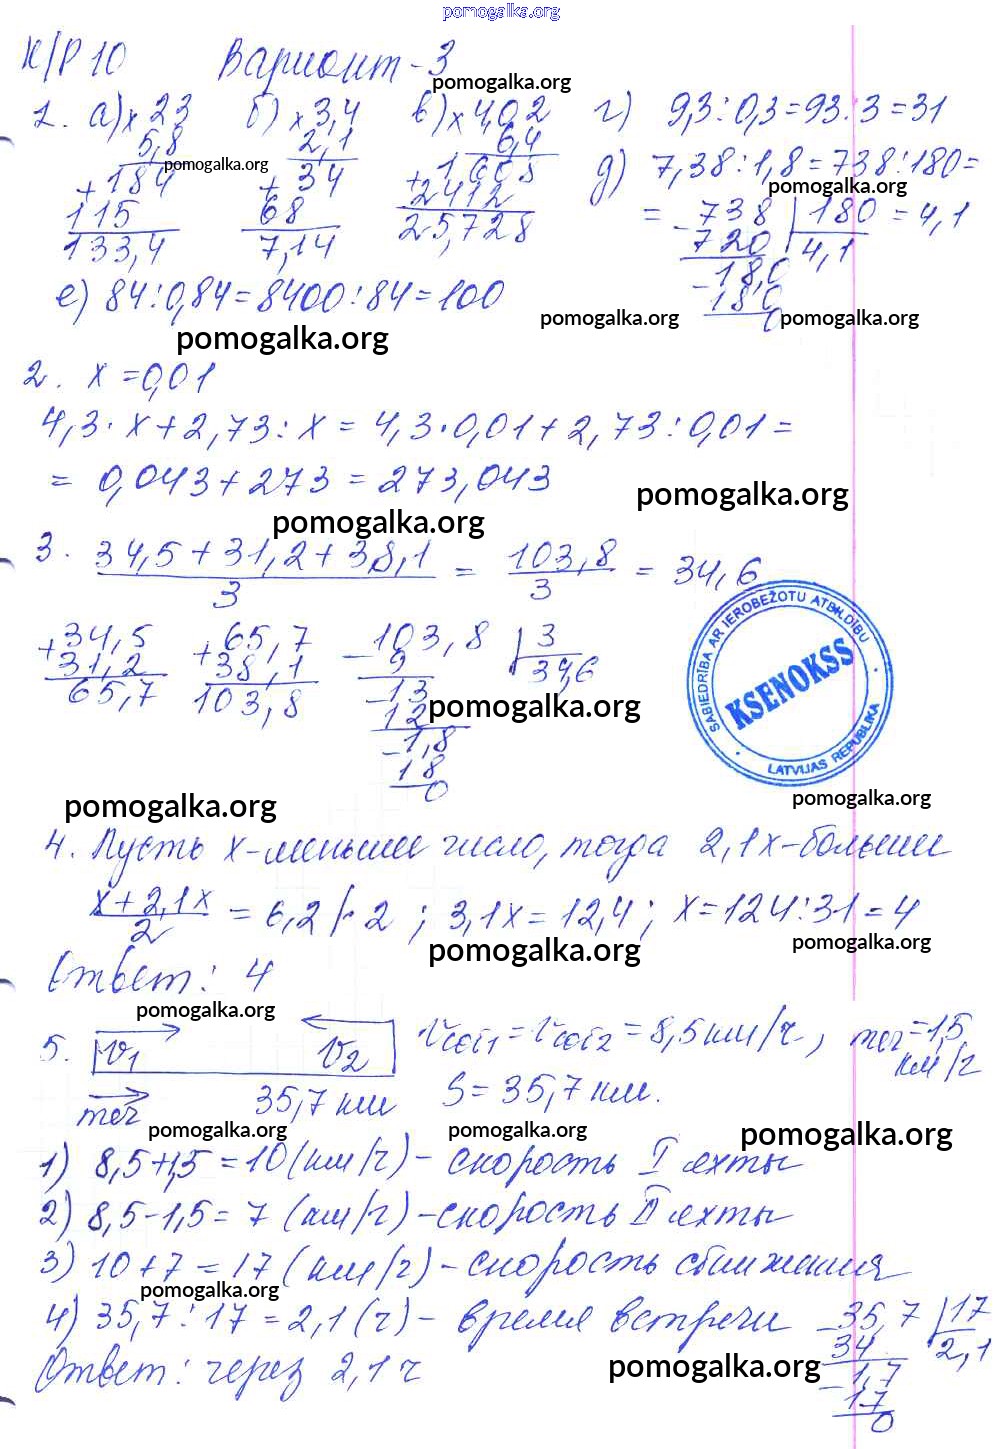 pomogalka.org
К/Р 10 Вариант-3
pomogalka.org
1. а) × 23 б) × 3,4 в) × 4,02 г) 9,3 : 0,3 = 93 : 3 = 31
5,8 2,1 6,4
pomogalka.org
+ 184 + 34 + 1608 д) 7,38 : 1,8 = 738 : 180 =
pomogalka.org
115 68 2412 = - 738 | 180 = 4,1
133,4 7,14 25,728 720 4,1
- 18,0
18,0
0
е) 84 : 0,84 = 8400 : 84 = 100
pomogalka.org pomogalka.org pomogalka.org
2. x = 0,01
4,3 · x + 2,73 : x = 4,3 · 0,01 + 2,73 : 0,01 =
= 0,043 + 273 = 273,043
pomogalka.org
pomogalka.org
3. 34,5 + 31,2 + 38,1 / 3 = 103,8 / 3 = 34,6
+ 34,5 + 65,7 - 103,8 | 3
31,2 38,1 9 34,6
65,7 103,8 - 13
12
- 1,8
18
0
SABIEDRĪBA AR IEROBEŽOTU ATBILDĪBU
KSENOKSS
LATVIJAS REPUBLIKA
pomogalka.org
pomogalka.org pomogalka.org
4. Пусть x-меньшее число, тогда 2,1x-большее
x + 2,1x / 2 = 6,2 | · 2 ; 3,1x = 12,4 ; x = 124 : 31 = 4
pomogalka.org pomogalka.org
Ответ: 4
pomogalka.org
5. v1 v2 vсоб1 = vсоб2 = 8,5 км/ч, теч = 1,5 км/ч
теч 35,7 км S = 35,7 км.
pomogalka.org pomogalka.org pomogalka.org
1) 8,5+1,5 = 10 (км/ч) - скорость I яхты
2) 8,5-1,5 = 7 (км/ч) - скорость II яхты
3) 10 + 7 = 17 (км/ч) - скорость сближения
pomogalka.org
4) 35,7 : 17 = 2,1 (ч) - время встречи - 35,7 | 17
34 2,1
- 1,7
17
0
Ответ: через 2,1 ч
pomogalka.org